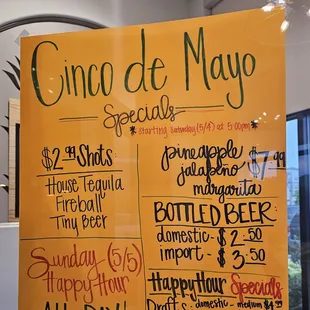 Cinco de Mayo
Specials
*Starting Saturday (5/4) at 5:00pm*
$2.99 Shots:
House Tequila
Fireball
Tiny Beer
Sunday (5/5)
Happy Hour
ALL DAY!
pineapple $7.99
jalapeño
margarita
BOTTLED BEER:
domestic - $2.50
import - $3.50
Happy Hour Specials
Drafts - domestic - medium $4.99